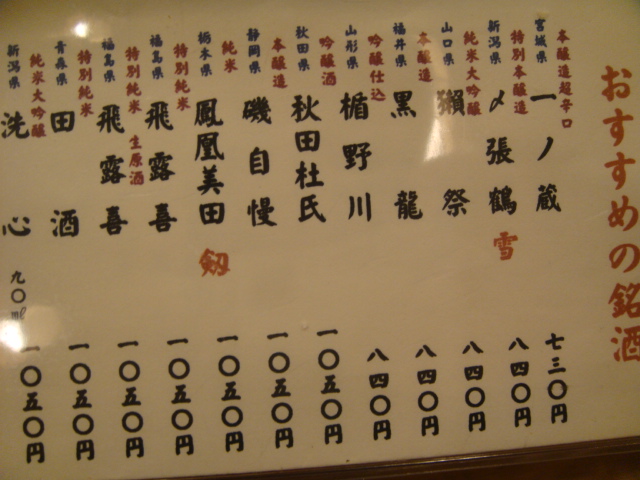 おすすめの銘酒
宮城県 本醸造超辛口 一ノ蔵 七三〇円
新潟県 特別本醸造 〆張鶴 雪 八四〇円
山口県 純米大吟醸 獺祭 八四〇円
福井県 本醸造 黒龍 八四〇円
山形県 吟醸仕込 楯野川 八四〇円
秋田県 吟醸酒 秋田杜氏 一〇五〇円
静岡県 本醸造 磯自慢 一〇五〇円
栃木県 純米 鳳凰美田 剱 一〇五〇円
福島県 特別純米 飛露喜 一〇五〇円
福島県 特別純米 生原酒 飛露喜 一〇五〇円
青森県 特別純米 田酒 一〇五〇円
新潟県 純米大吟醸 洗心 九〇㎖ 一〇五〇円